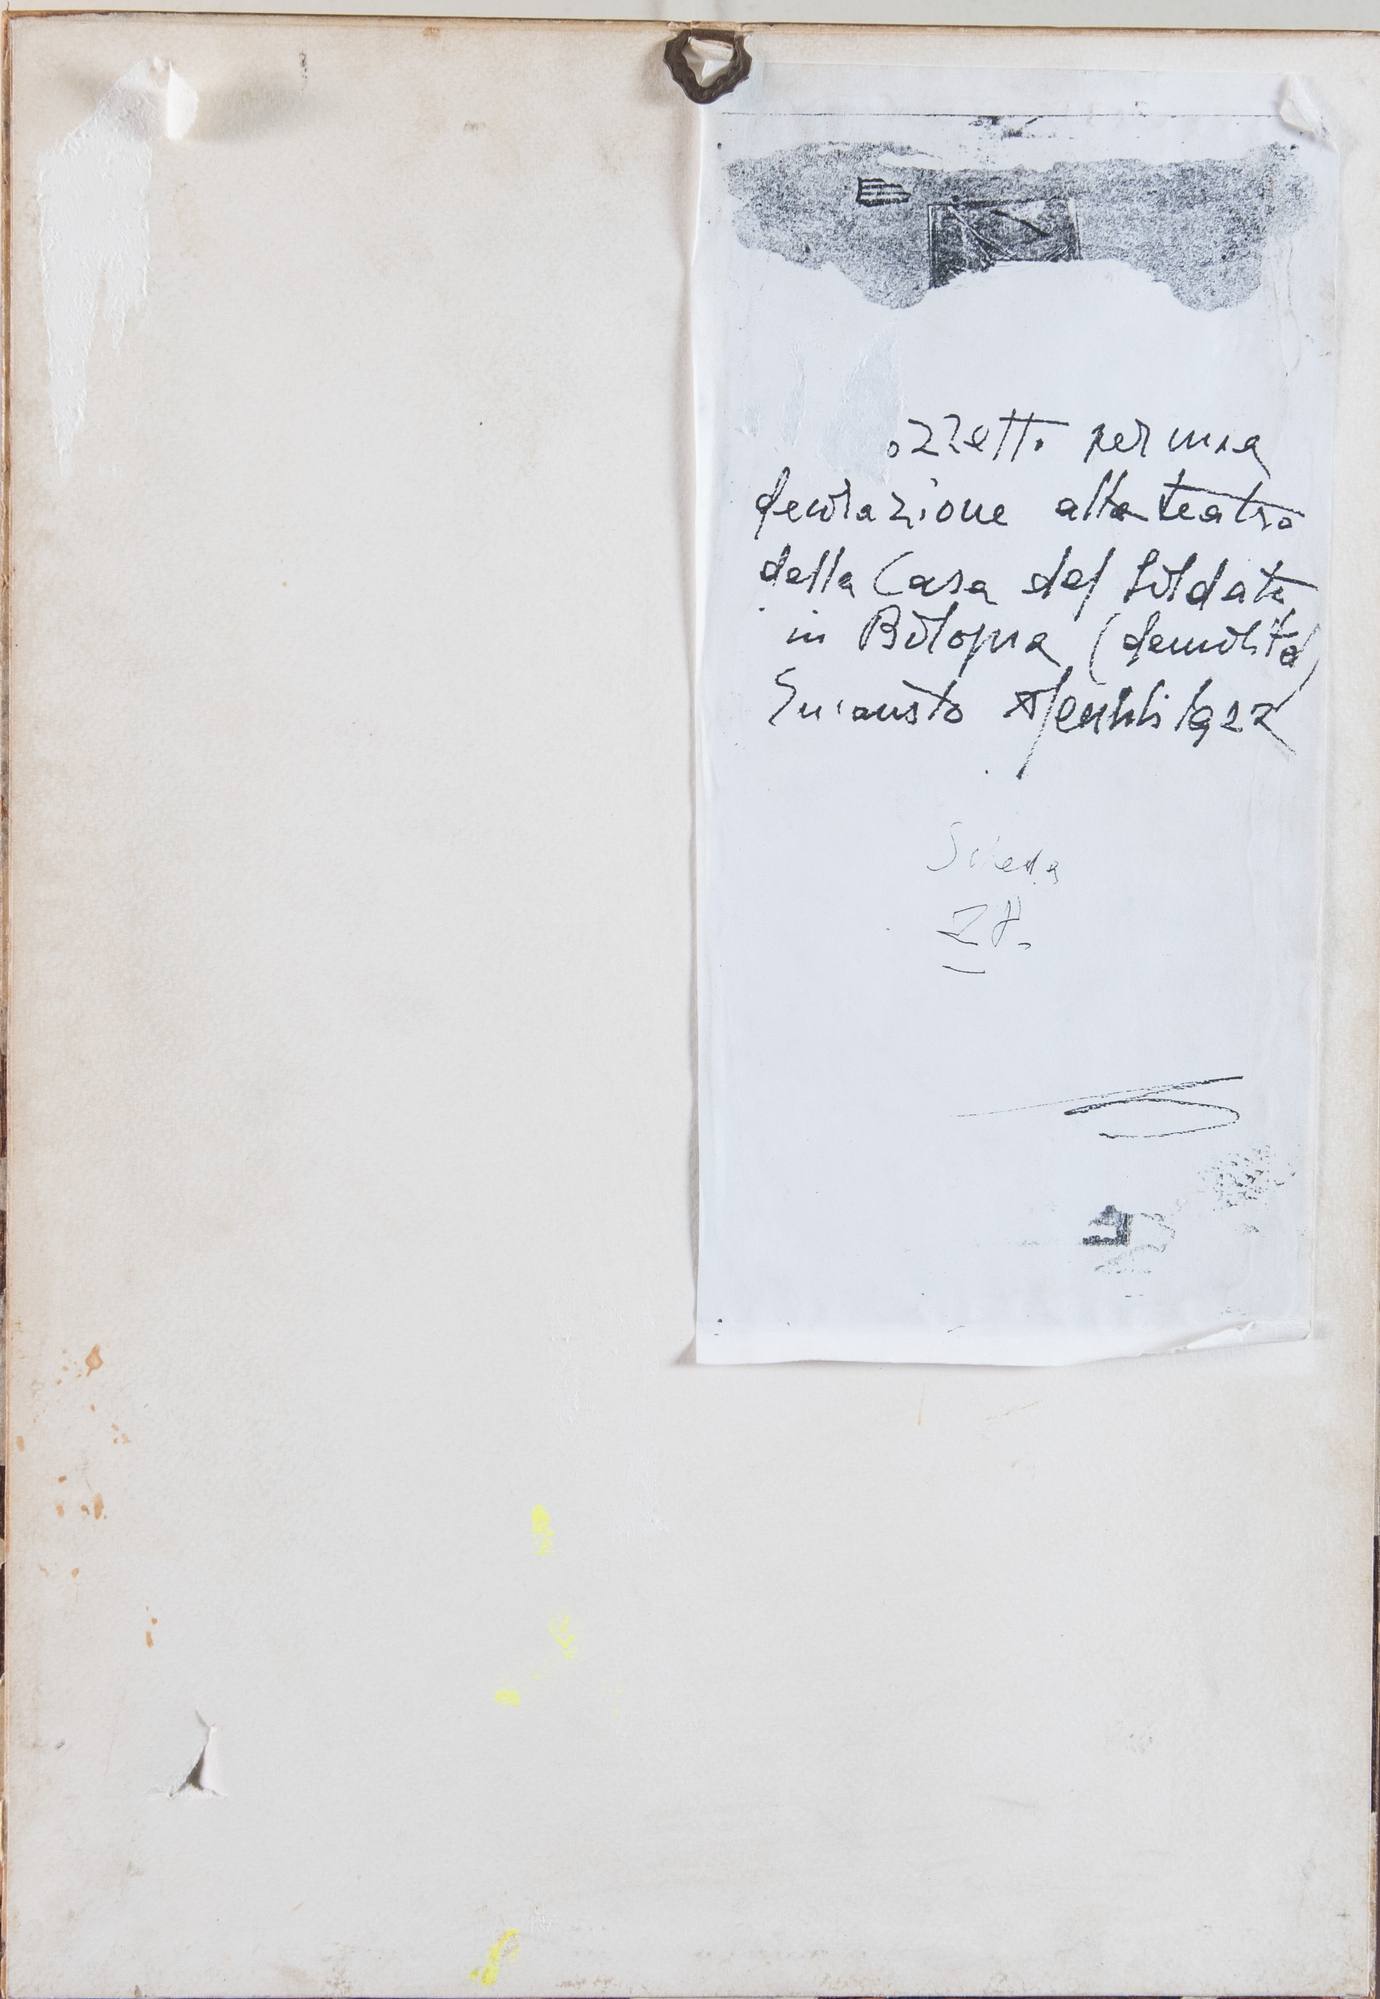 ozzetto per una
decorazione alla teatro
della Casa del Soldato
in Bologna (demolita)
Encausto 1922
Scheda